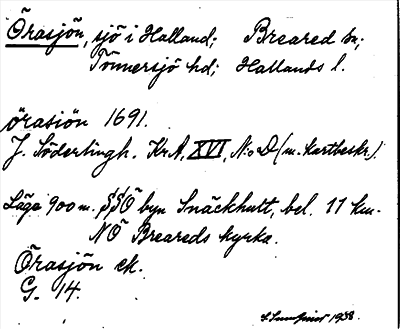 Örasjön, sjö i Halland; Breared sn;
Tönnersjö hd; Hallands l.
örasiön 1691.
J. Söderlingh. Kr A, XVI, No D (m. kartbeskr.).
Läge 900 m. SSÖ byn Snäckhult, bel. 11 km.
NÖ Breareds kyrka.
Örasjön ek.
G. 14.
1938